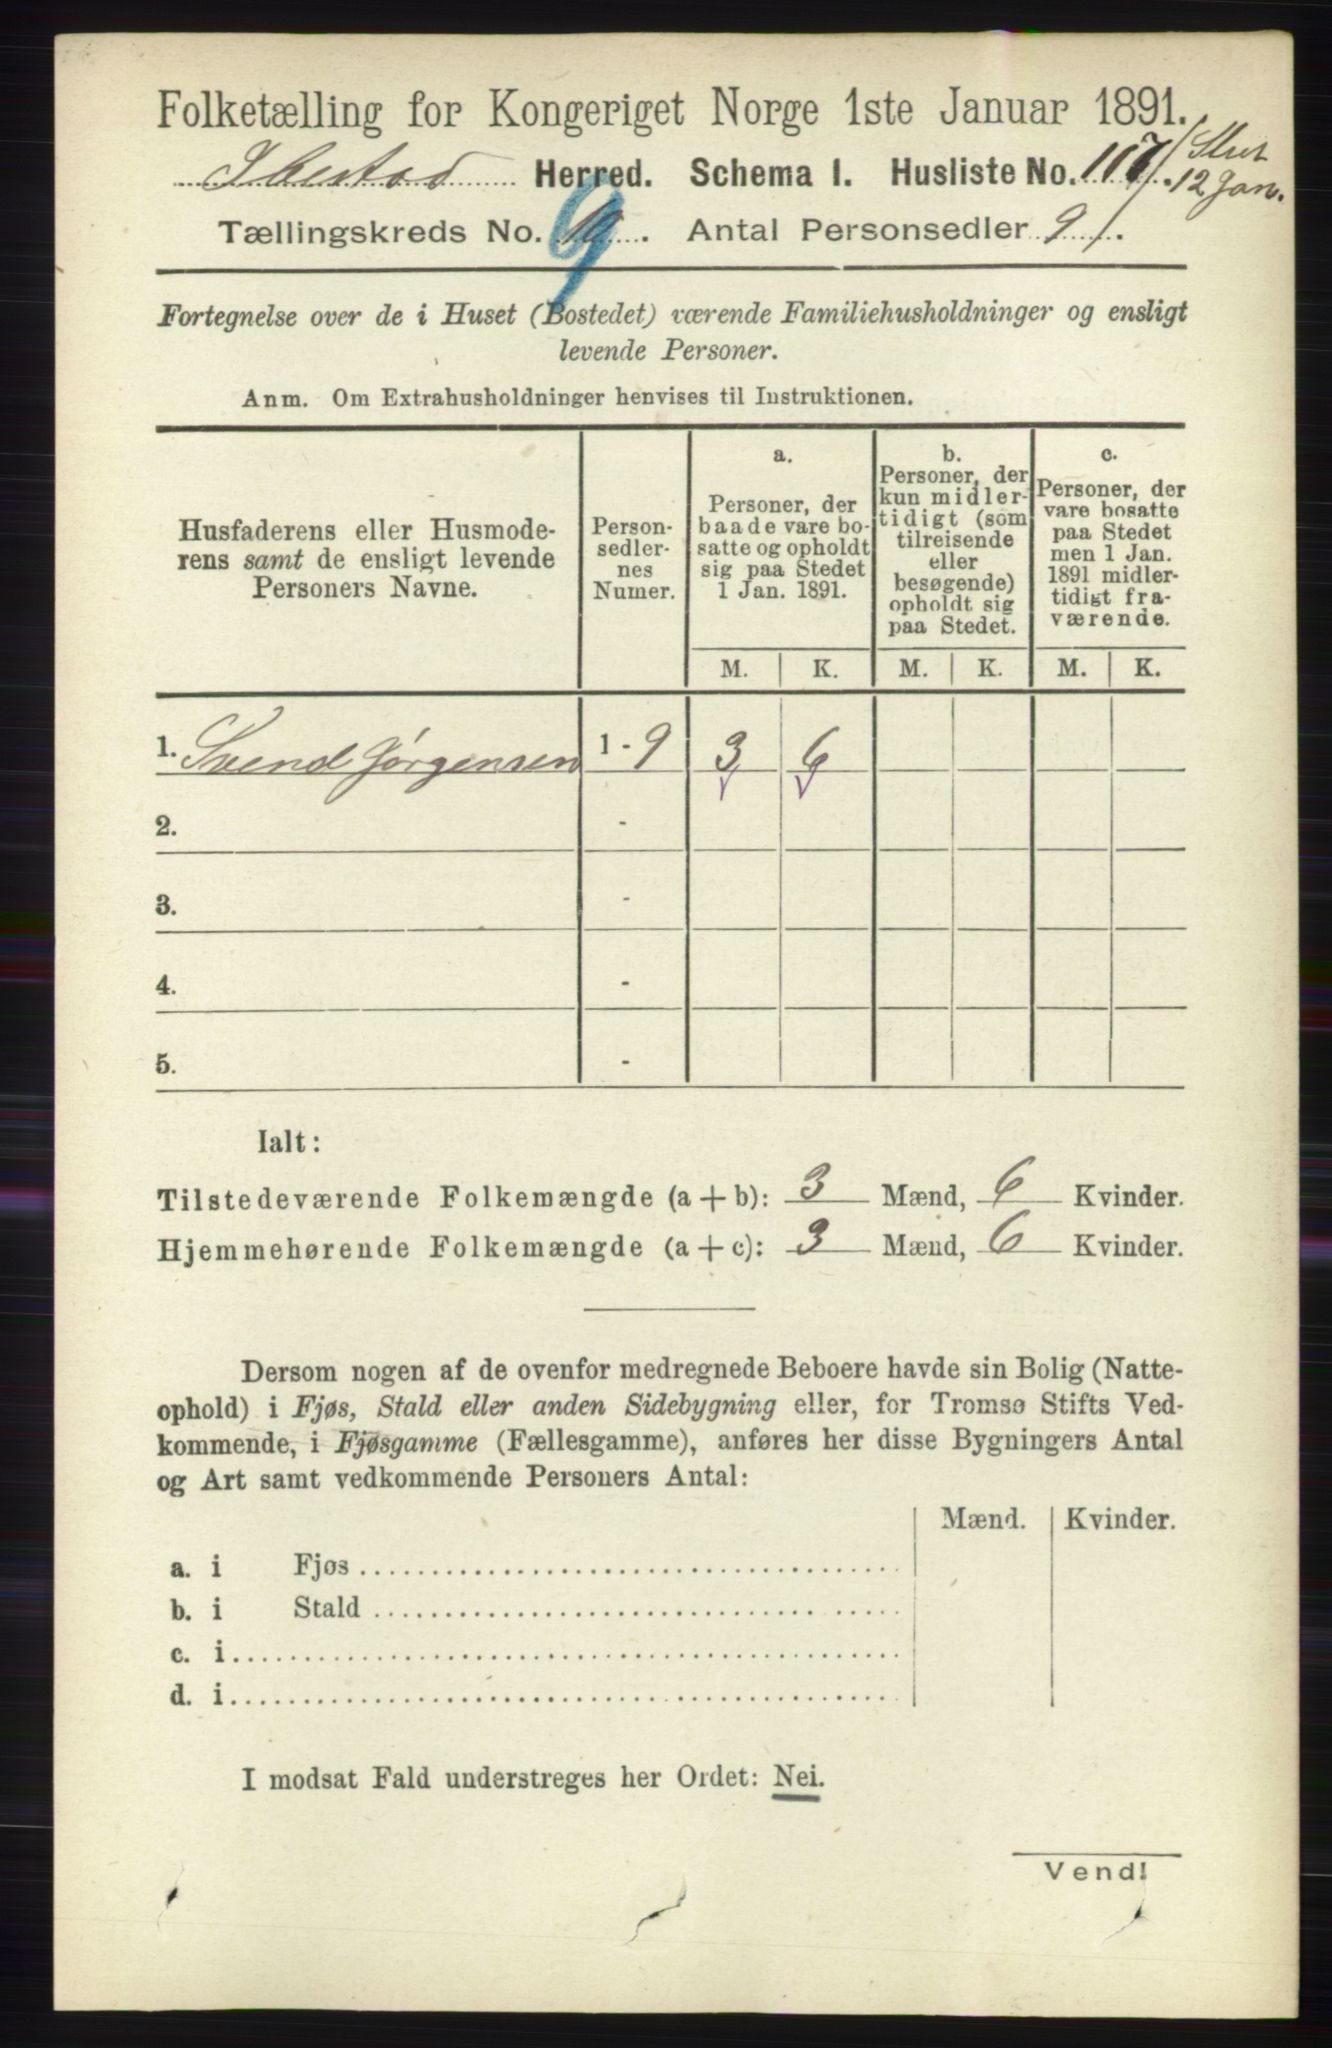 Folketælling for Kongeriget Norge 1ste Januar 1891.
Ibestad Herred. Schema 1. Husliste No. 117. Slut
12 Jan.
Tællingskreds No. 10. 9 Antal Personsedler 9.
Fortegnelse over de i Huset (Bostedet) værende Familiehusholdninger og ensligt
levende Personer.
Anm. Om Extrahusholdninger henvises til Instruktionen.
Husfaderens eller Husmode-
rens samt de ensligt levende
Personers Navne.
Person-
sedler-
nes
Numer.
a.
Personer, der
baade vare bo-
satte og opholdt
sig paa Stedet
1 Jan. 1891.
b.
Personer, der
kun midler-
tidigt (som
tilreisende
eller
besøgende)
opholdt sig
paa Stedet.
c.
Personer, der
vare bosatte
paa Stedet
men 1 Jan.
1891 midler-
tidigt fra-
værende.
M. K. M. K. M. K.
1. Svend Jørgensen 1 - 9 3 6
2. -
3. -
4. -
5. -
Ialt:
Tilstedeværende Folkemængde (a + b): 3 Mænd, 6 Kvinder.
Hjemmehørende Folkemængde (a + c): 3 Mænd, 6 Kvinder.
Dersom nogen af de ovenfor medregnede Beboere havde sin Bolig (Natte-
ophold) i Fjøs, Stald eller anden Sidebygning eller, for Tromsø Stifts Ved-
kommende, i Fjøsgamme (Fællesgamme), anføres her disse Bygningers Antal
og Art samt vedkommende Personers Antal:
Mænd. Kvinder.
a. i Fjøs
b. i Stald
c. i
d. i
I modsat Fald understreges her Ordet: Nei.
Vend!